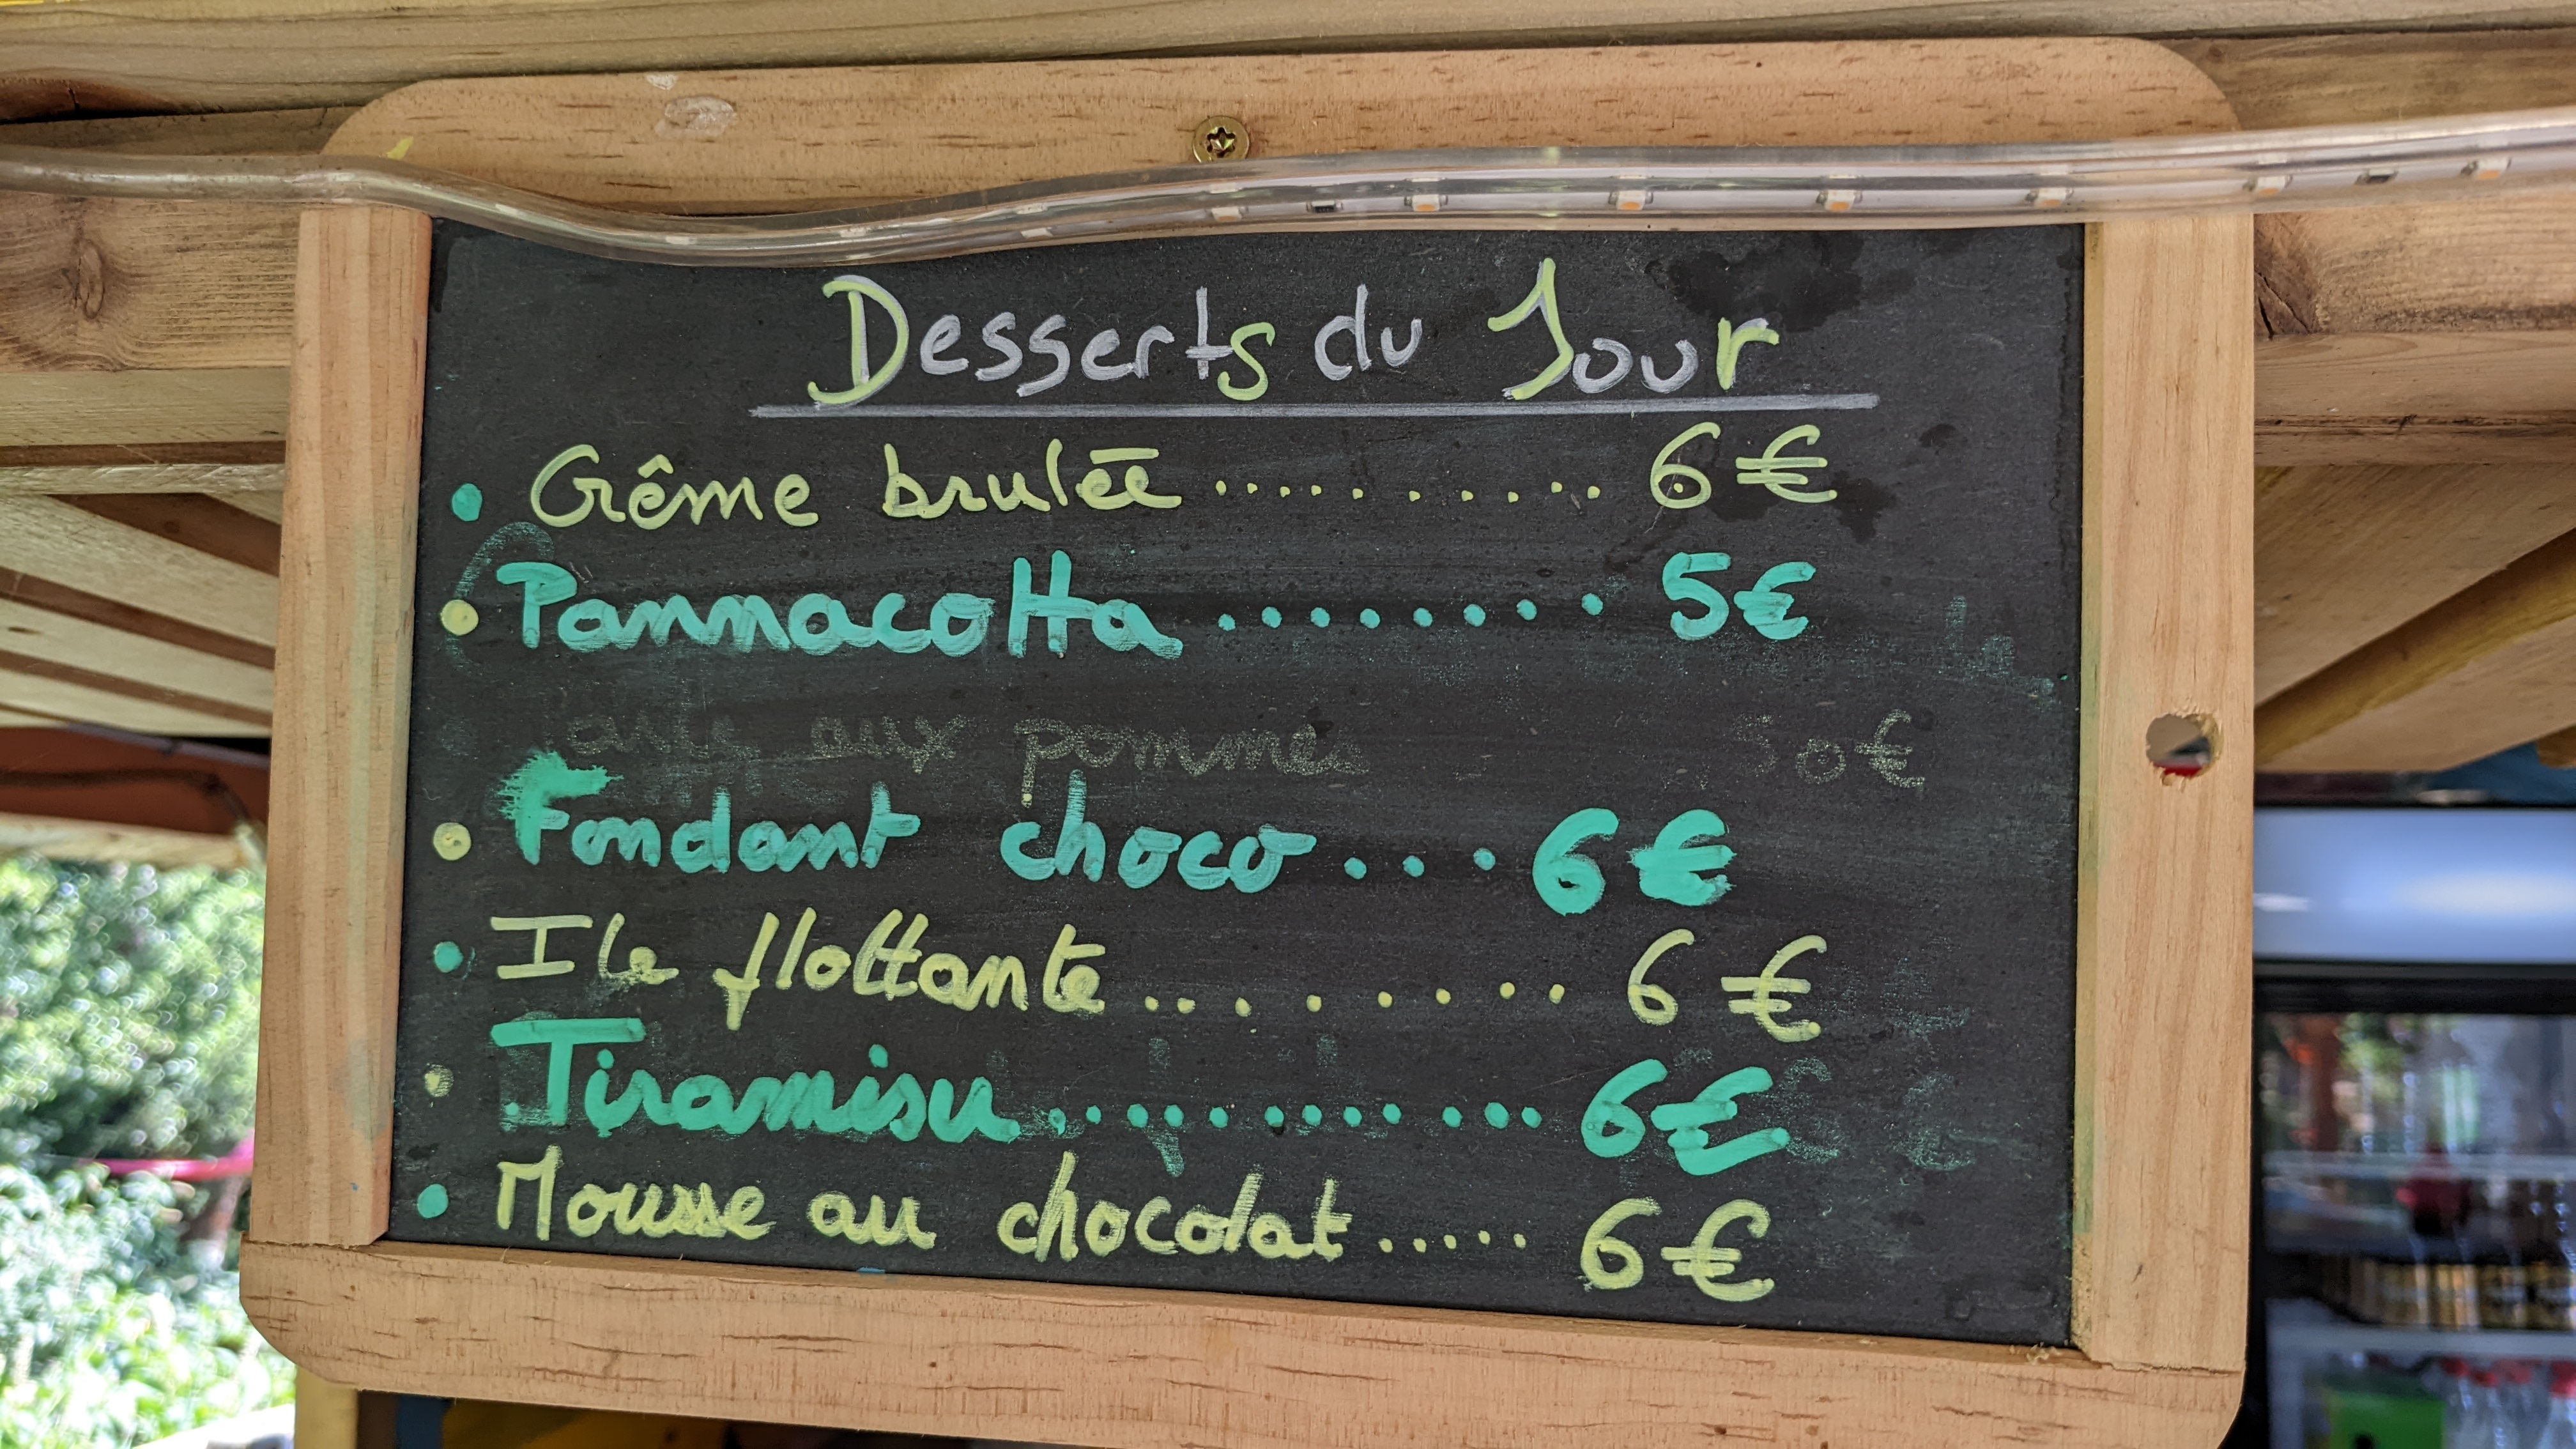 Desserts du Jour
• Crême brulée ............ 6€
• Pannacotta ........ 5€
aux pommes 50€
• Fondant choco ... 6€
• Ile flottante ......... 6€
• Tiramisu ............ 6€
• Mousse au chocolat ..... 6€